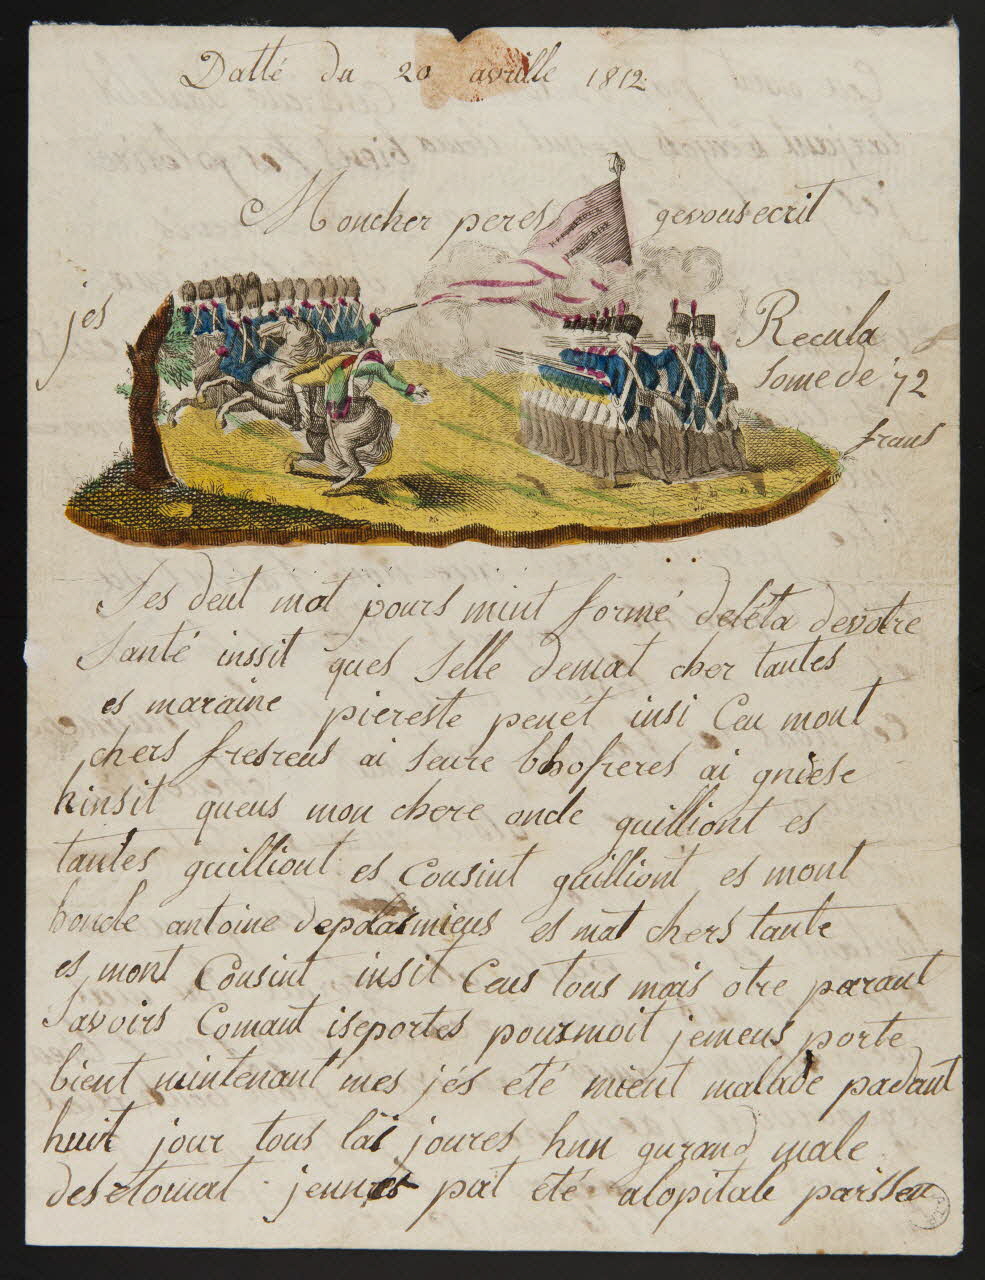 Datté du 20 avrille 1812
Moncher peres gevousecrit
jes Recula
Somede 72
frans
Jes deut mat pours mint formé deléta devotre
Santé inssit ques Selle demat cher tantes
es maraine piereste penét insi Ceu mont
chers fresreus ai seure bhofreres ai gniese
hinsit queus mon chere oncle guilliont es
tantes guilliont es Cousint guilliont es mont
honcle antoine depdaimieus es mat chers tante
es mont Cousint insit Ceus tous mais otre parant
Savoirs Comant iseportes pourmoit jemeus porte
bient mintenant mes jés été mient malade padant
huit jour tous lais joures hun gurand male
desetomat jennes pat été alopitale parisseu